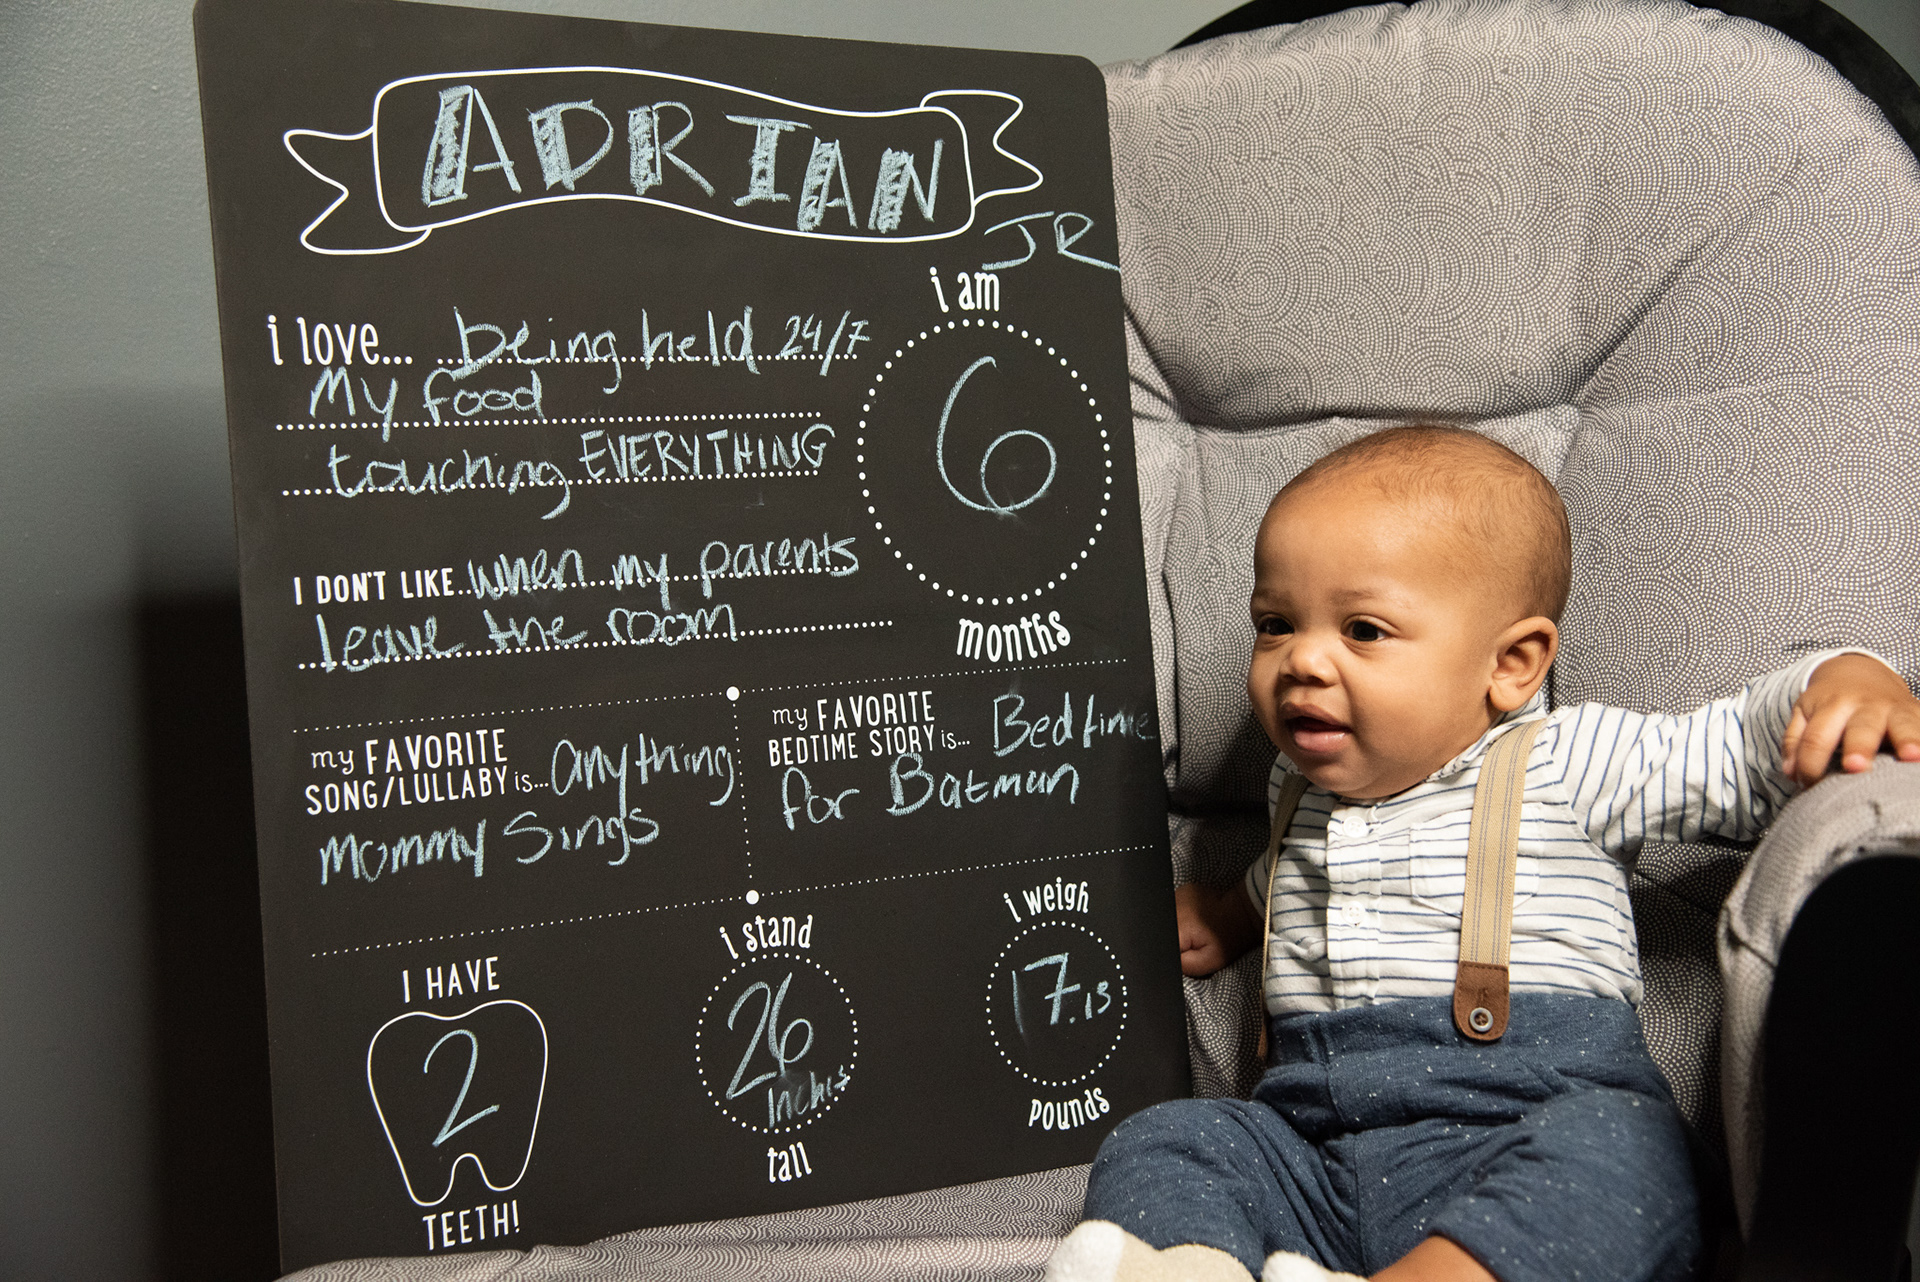 ADRIAN
JR
i love... being held 24/7
My food
touching EVERYTHING
i am
6
months
I DON'T LIKE.. when my parents
leave the room
my FAVORITE
SONG/LULLABY is... anything
mommy Sings
my FAVORITE
BEDTIME STORY is... Bedtime
for Batman
I HAVE
2
TEETH!
i stand
26
Inches
tall
i weigh
17.13
pounds